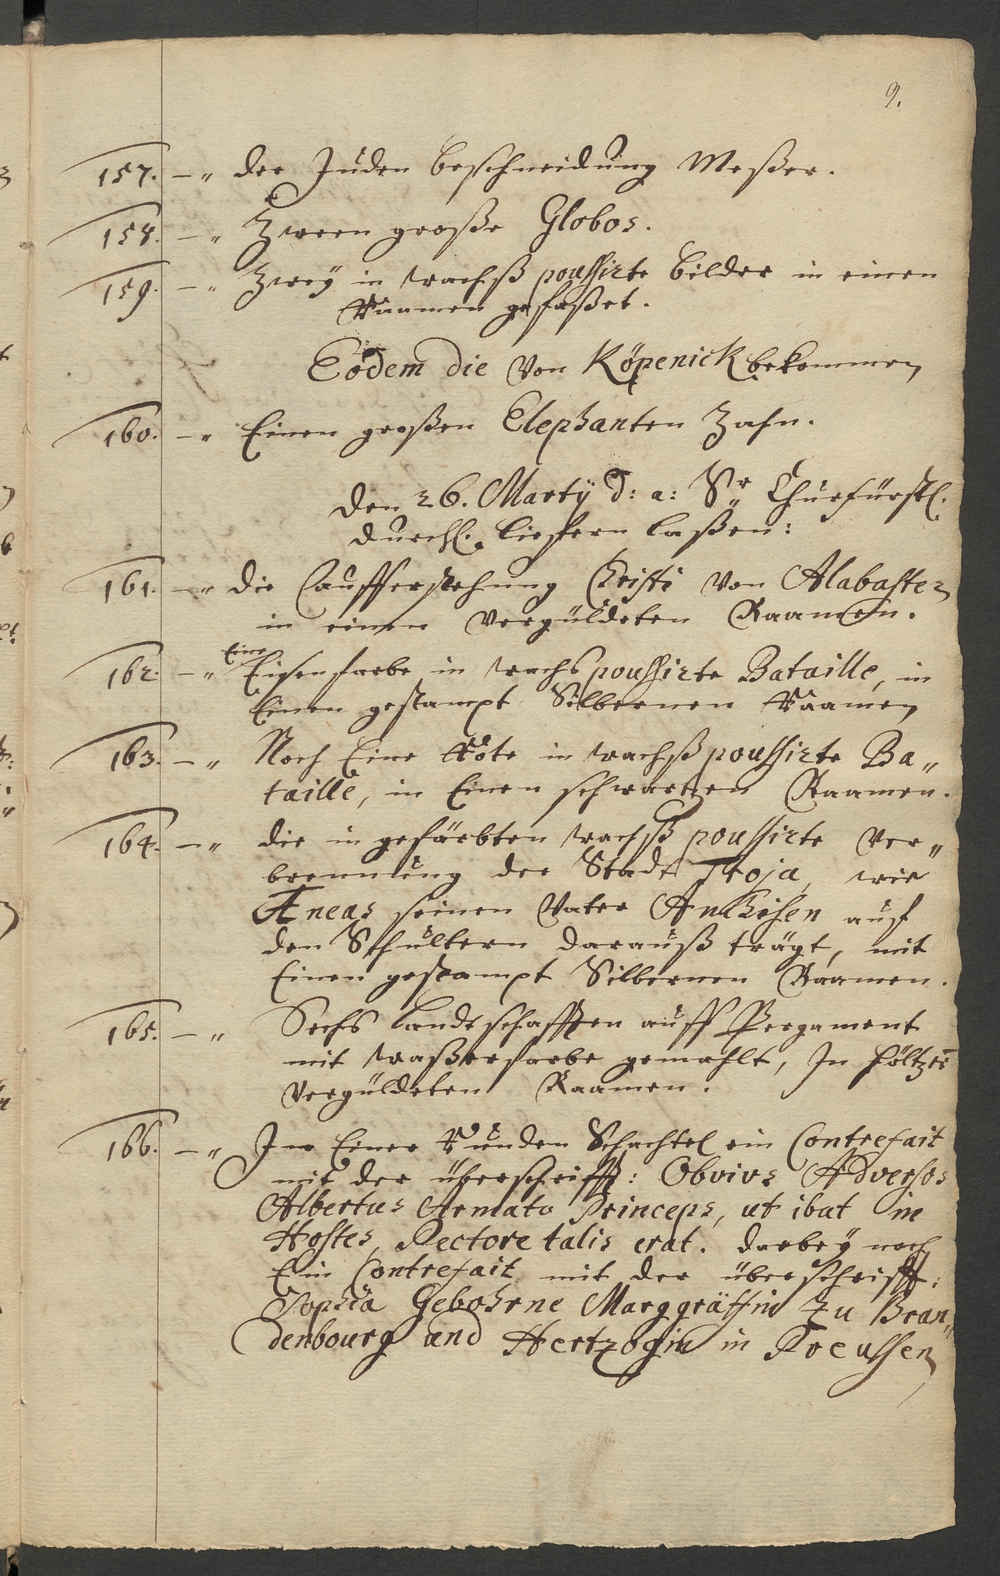 9.
157. – „ der Juden beschneidung Meßer.
158. – „ Zween große Globos.
159. – „ Zweÿ in wachß poussirte bilder in einen
Raamen gefaßet.
Eodem die von Köpenick bekommen
160. – „ Einen großen Elephanten Zahn.
Den 26. Martÿ d: a: Sr Churfürstl.
Durchl. liefern laßen:
161. – „ die aufferstehung Christi von Alabaster
in einen vergüldeten Raamen.
162. – „ Eine Eisenfarbe in wachs poussirte Bataille, in
Einen gestampt Silbernen Raamen
163. – „ Noch Eine Rote in wachß poussirte Ba„
taille, in Einen schwartzen Raamen.
164. – „ die in gefärbten wachß poussirte Ver„
brennung der Stadt Troja, wie
Æneas seinen Vater Anchisen auf
den Schultern darauß trägt, mit
Einen gestampt Silbernen Raamen.
165. – „ Sechs landtschafften auff Pergament
mit waßerfarbe gemahlt, In höltzer
vergüldeten Raamen.
166. – „ In Einer Runden Schachtel ein Contrefait
mit der überschrifft: Obvius Adversos
Albertus Armato Princeps, ut ibat in
Hostes, Pectore talis erat. darbeÿ noch
Ein Contrefait mit der überschrifft:
Sophia Gebohrne Marggräffin zu Bran„
denbourg und Hertzogin in Preussen